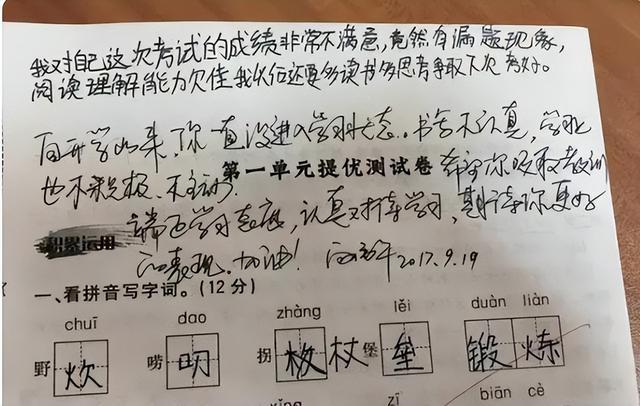 我对自己这次考试的成绩非常不满意,竟然有漏题现象,
阅读理解能力欠佳我以后还要多读书多思考争取下次考好。
自开学以来,你一直没进入学习状态。书写不认真,学习
也不积极、不主动。
希望你吸取教训
第一单元提优测试卷
端正学习态度,认真对待学习,期待你更好
的表现。加油!
2017.9.19
积累运用
一、看拼音写字词。(12分)
chuī dao zhàng lěi duàn liàn
野炊 唠叨 拐杖 堡垒 锻炼
xíng zī biān cè